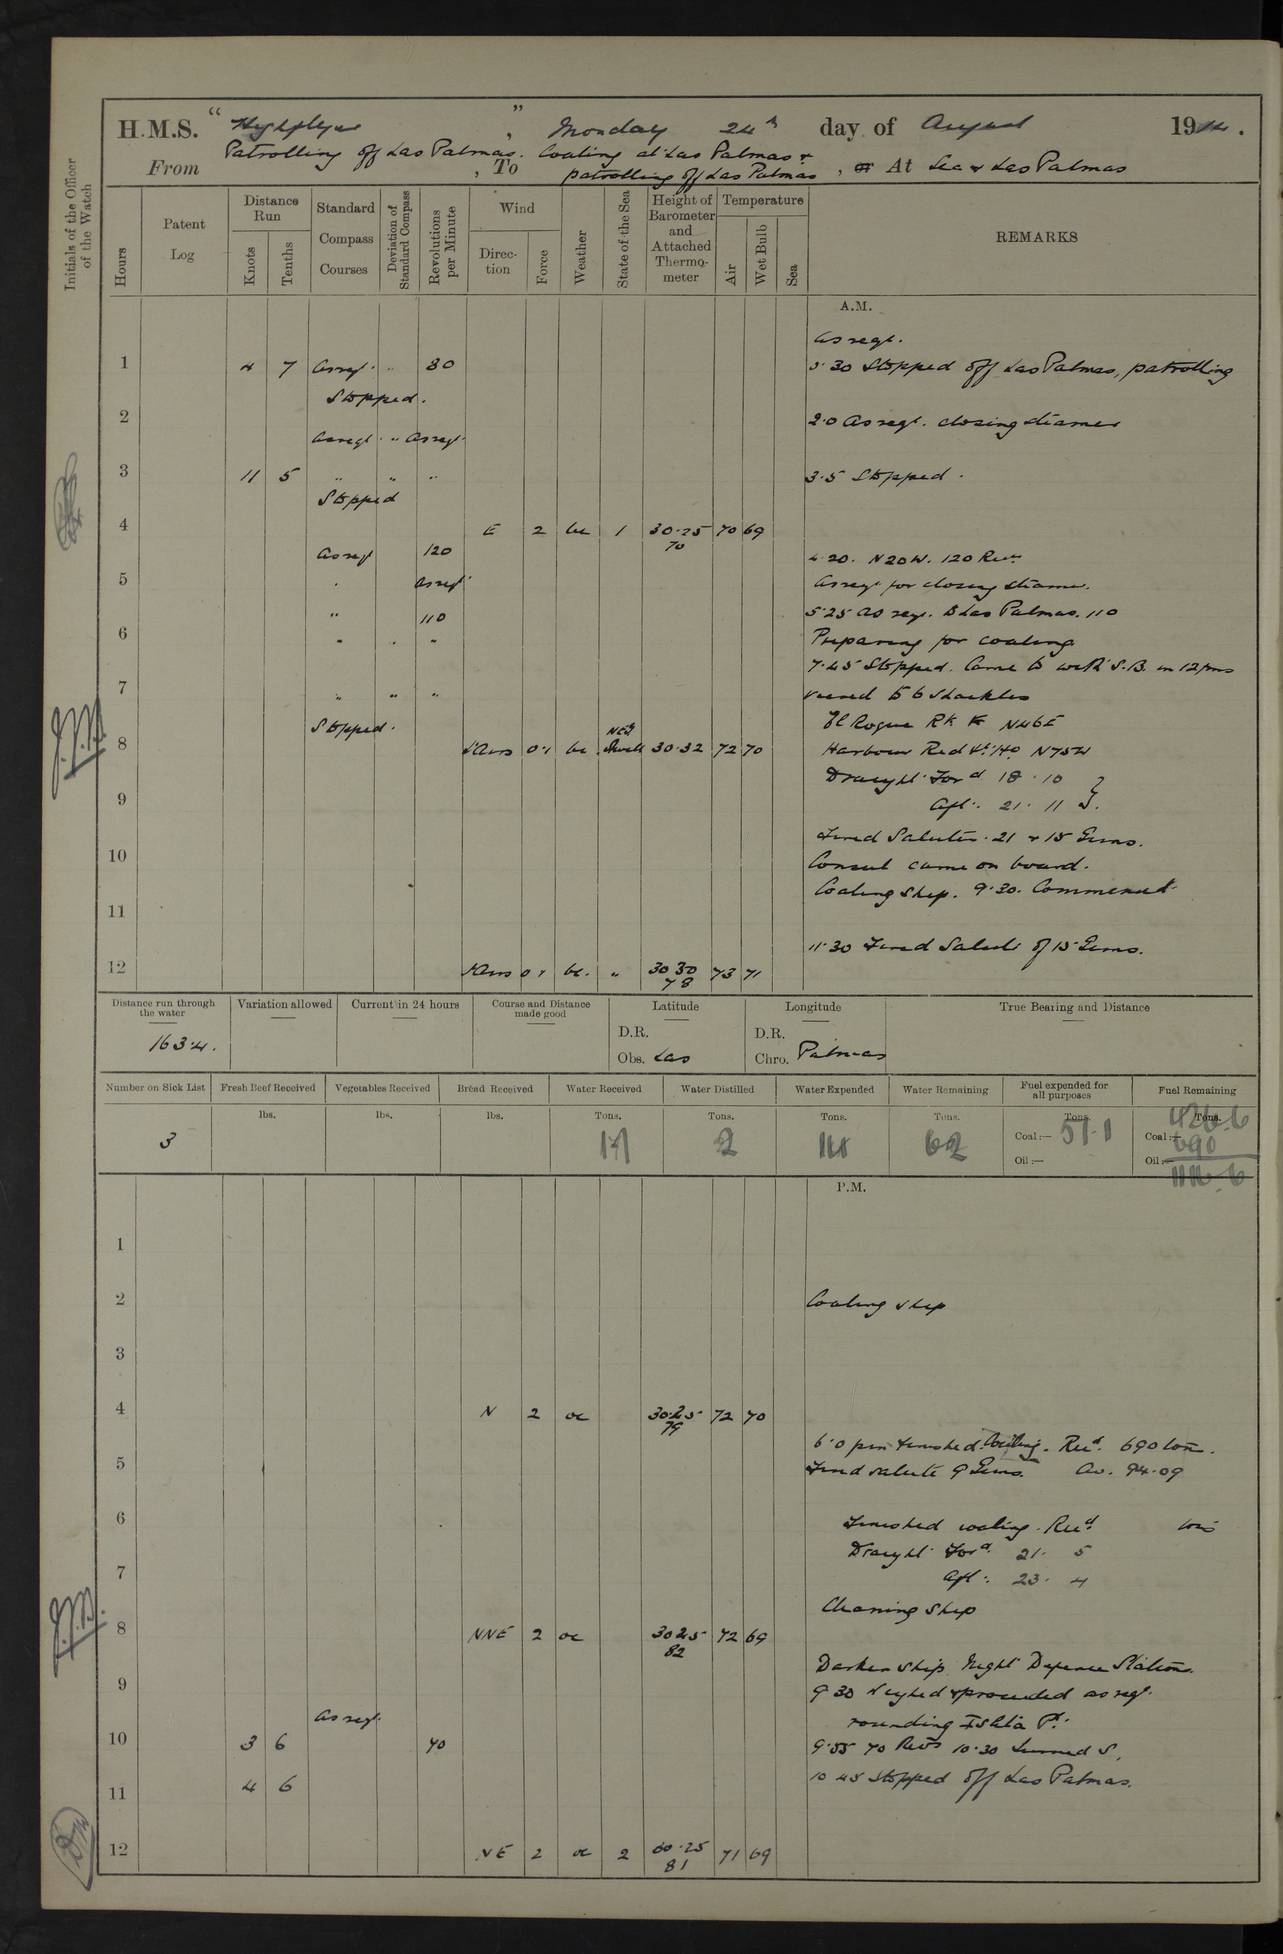 H.M.S. "Highflyer", Monday 24th day of August 1914.
From Patrolling off Las Palmas. , To Coaling at Las Palmas & patrolling off Las Palmas , or At Sea & Las Palmas
Initials of the Officer of the Watch
Hours
Patent Log
Distance Run
Knots
Tenths
Standard Compass Courses
Deviation of Standard Compass
Revolutions per Minute
Wind
Direction
Force
Weather
State of the Sea
Height of Barometer and Attached Thermometer
Temperature
Air
Wet Bulb
Sea
REMARKS
A.M.
As reqt.
1 4 7 As reqt. " 80 30 Stopped off Las Palmas, patrolling
Stopped.
2 2.0 As reqt. closing steamer
As reqt. " As reqt.
3 11 5 " " " 3.5 Stopped.
Stopped
4 E 2 bc 1 30.25 70 69
70
As reqt 120 4.20. N20W. 120 Revs
5 As reqt As reqt for closing steamer.
" 110 5.25 As reqt. to Las Palmas. 110
6 " . " Preparing for coaling
7.45 Stopped. Came to with S.B. in 12 fms
7 " " " veered to 6 shackles
Stopped. El Roque RK N46E
8 Airs 0.1 bc NEly Swell 30.32 72 70 Harbour Red Lt. Ho. N75W
Draught Ford 18. 10
9 Aft. 21. 11
Fired Salutes. 21 & 15 Guns.
10 Consul came on board.
Coaling Ship. 9.30. Commenced.
11
11.30 Fired Salute of 15 Guns.
12 Airs 0.1 bc. " 30 30 73 71
78
Distance run through the water
163.4.
Variation allowed
Current in 24 hours
Course and Distance made good
Latitude
D.R.
Obs. Las
Longitude
D.R.
Chro. Palmas
True Bearing and Distance
Number on Sick List
3
Fresh Beef Received
lbs.
Vegetables Received
lbs.
Bread Received
lbs.
Water Received
Tons.
Water Distilled
Tons.
2
Water Expended
Tons.
Water Remaining
Tons.
62
Fuel expended for all purposes
Tons.
Coal:— 51.1
Oil:—
Fuel Remaining
Tons.
426.6
Coal:— 690
Oil:—
1116.6
P.M.
1
2 Coaling ship
3
4 N 2 oc 30.25 72 70
79
6.0 pm Finished Coaling. Recd. 690 tons.
5 Fired salute 9 Guns. Av. 94.09
6 Finished coaling. Recd. tons
Draught Ford. 21. 5
7 Aft. 23. 4
Cleaning Ship
8 NNE 2 oc 30 25 72 69
82
Darken ship. Night Defence Stations.
9 9 30 Weighed & proceeded as reqt.
As reqt. rounding Isleta Pt.
10 3 6 70 9.55 70 Revs 10.30 turned S.
11 4 6 10 45 Stopped off Las Palmas.
12 NE 2 oc 2 30.25 71 69
81